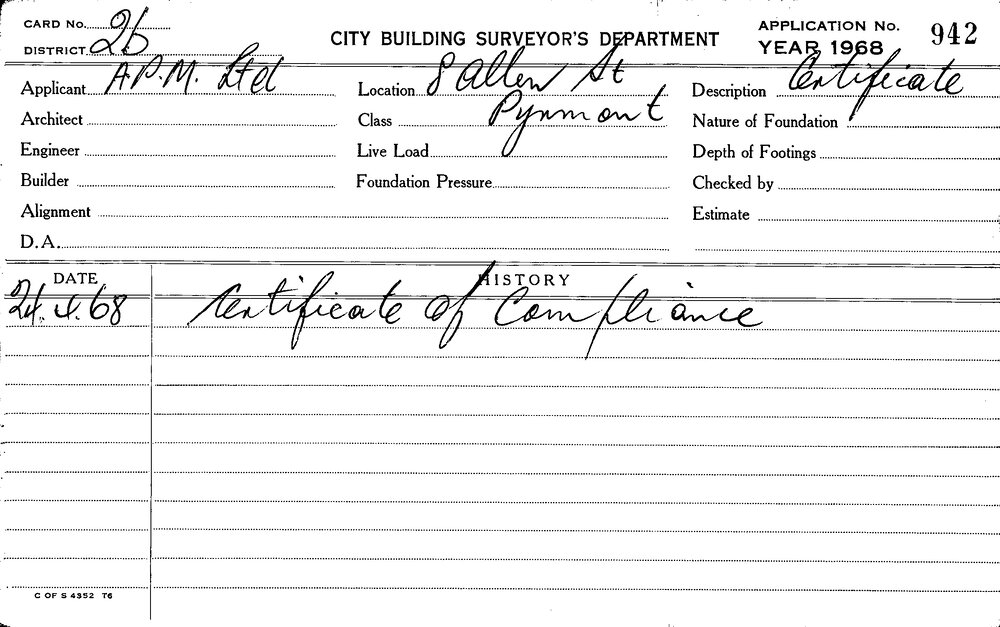 CARD No. 2b
DISTRICT
CITY BUILDING SURVEYOR'S DEPARTMENT
APPLICATION No. 942
YEAR 1968
Applicant A.P.M. Ltd
Location 8 Allen St
Description Certificate
Architect
Class Pyrmont
Nature of Foundation
Engineer
Live Load
Depth of Footings
Builder
Foundation Pressure
Checked by
Alignment
Estimate
D.A.
DATE
HISTORY
24.4.68 Certificate of Compliance
C OF S 4352 T6